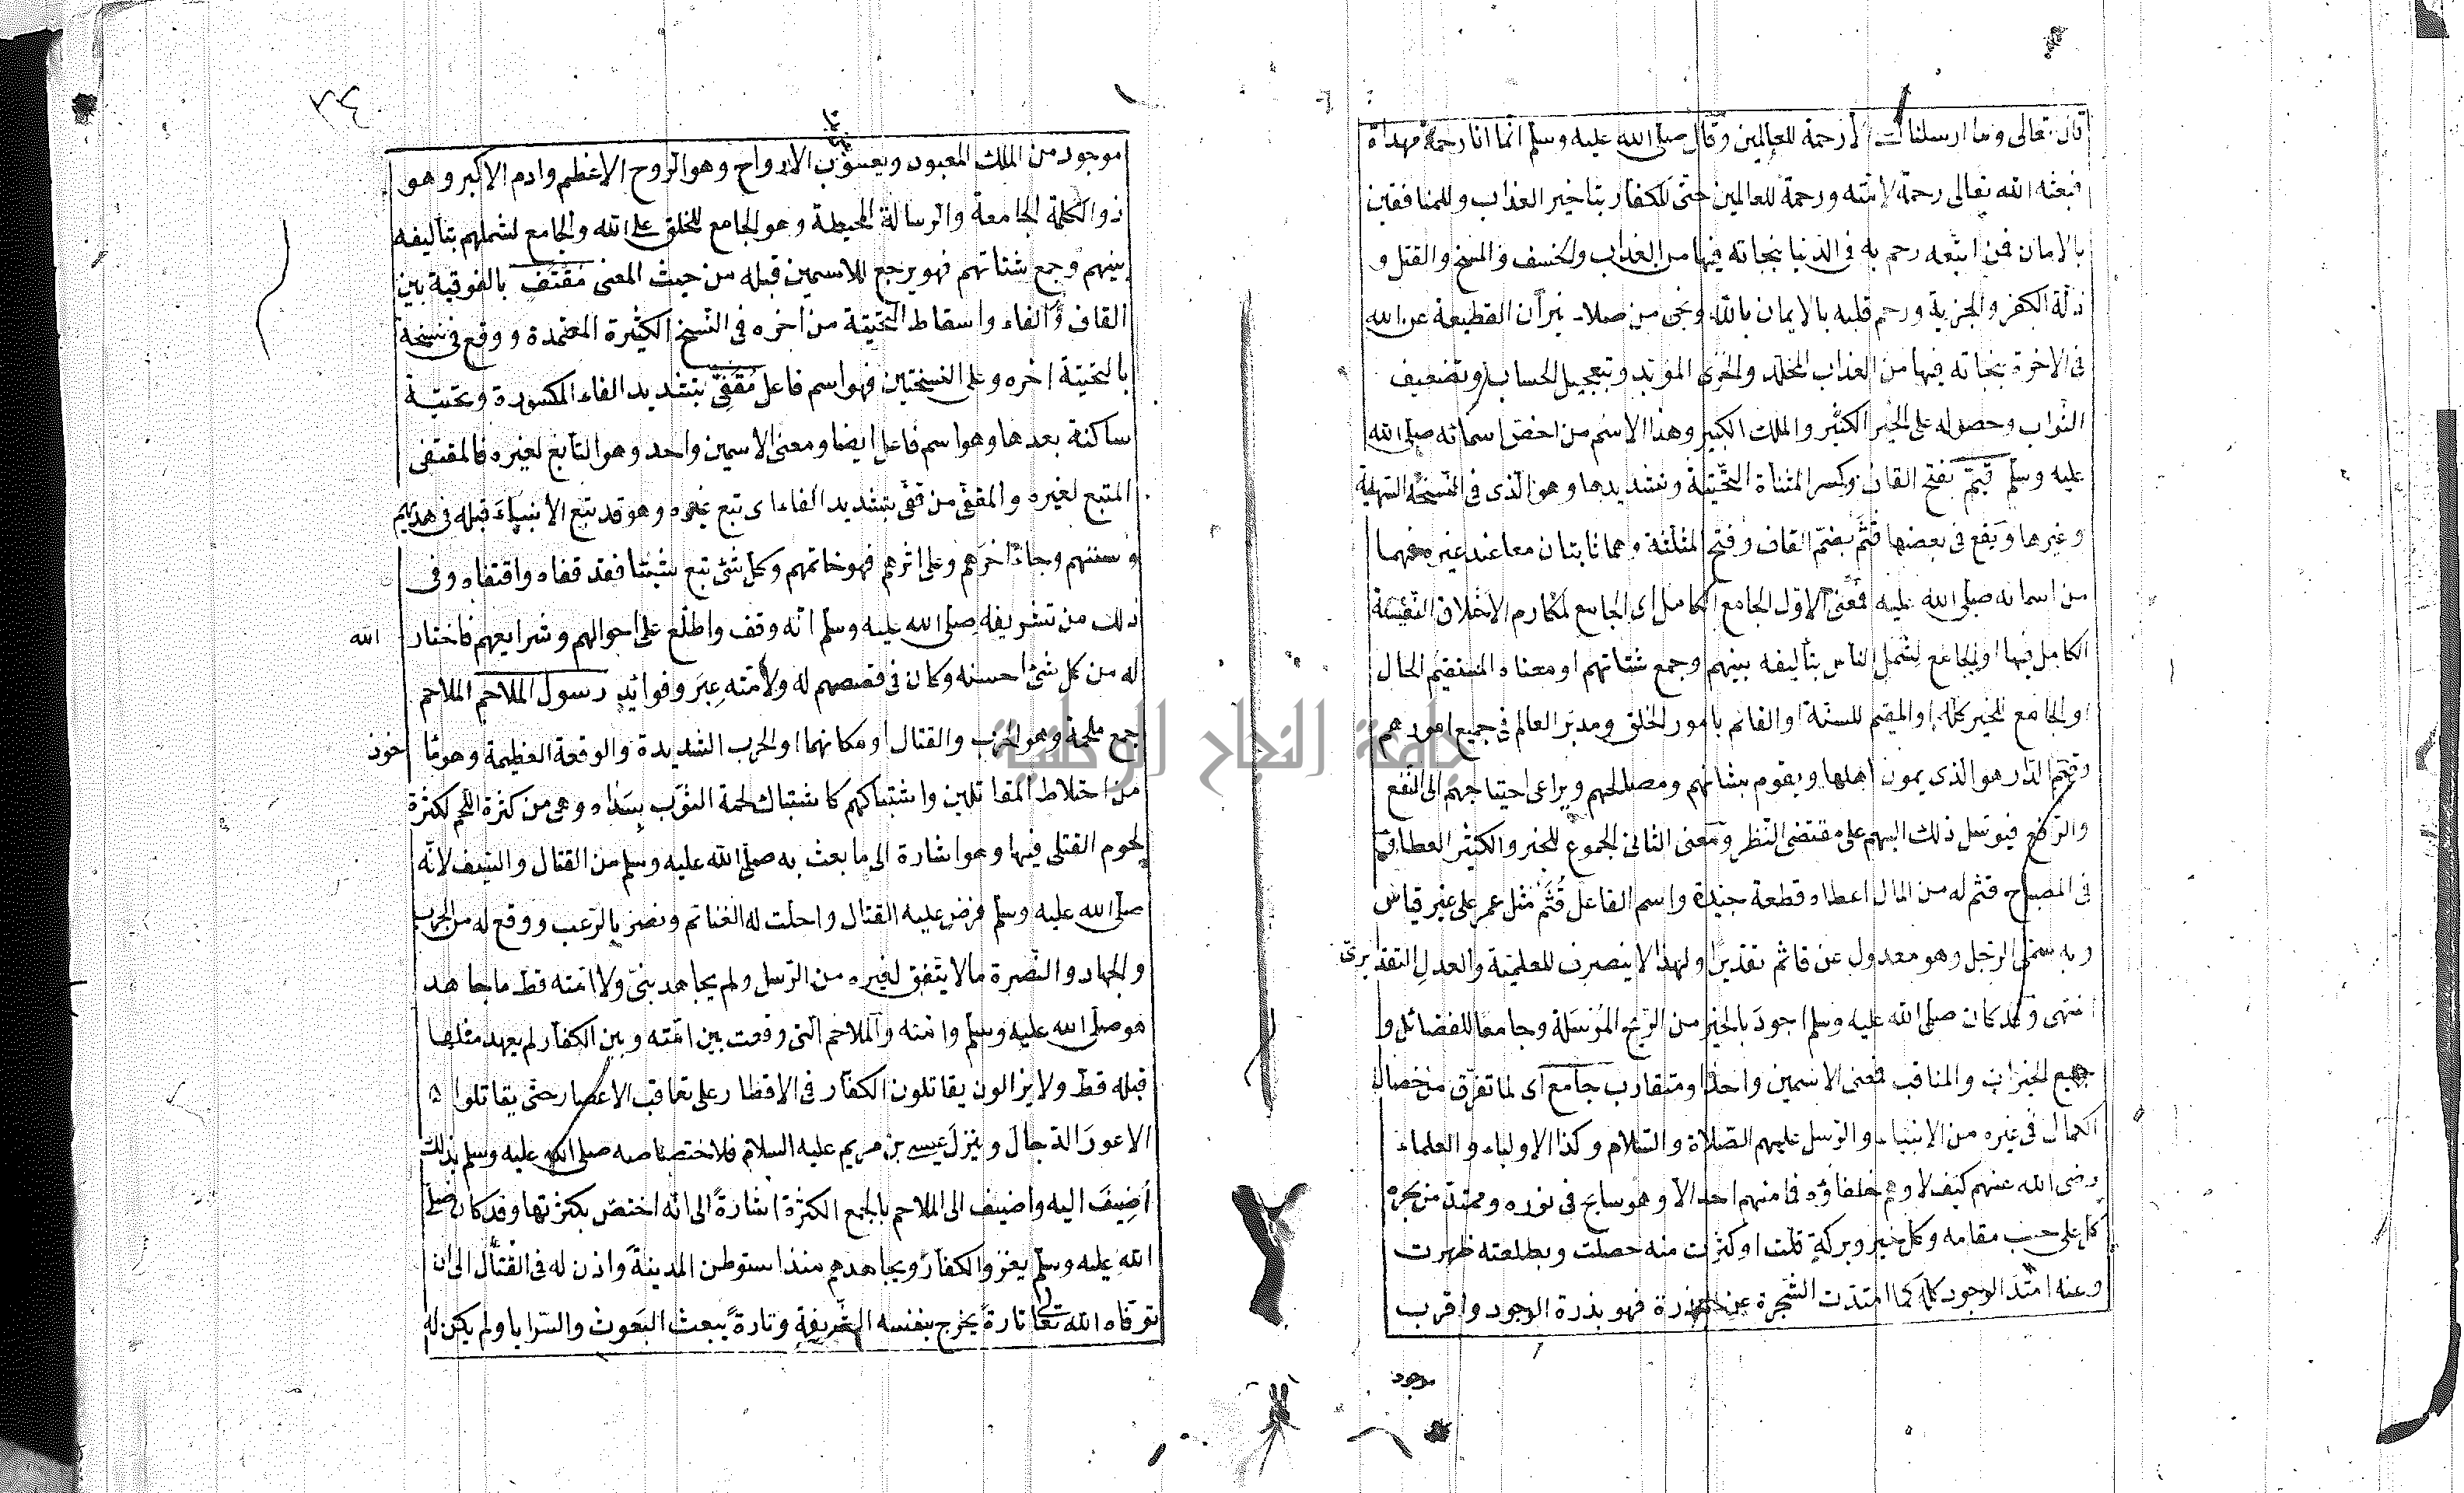 قال تعالى وما ارسلناك الا رحمة للعالمين وقال صلى الله عليه وسلم انما انا رحمة مهداة
فبعثه الله تعالى رحمة لامته ورحمة للعالمين حتى للكفار بتاخير العذاب وللمنافقين
بالامان فمن اتبعه رحم به فى الدنيا بنجاته فيها من العذاب والخسف والمسخ والقتل و
ذلة الكفر والجزية ورحم قلبه بالايمان بالله ونجى من صلاء نيران القطيعة عن الله
فى الاخرة بنجاته فيها من العذاب المخلد والخزى المؤبد وبتعجيل الحساب وتضعيف
الثواب وحصوله على الخير الكثير والملك الكبير وهذا الاسم من اخص اسمائه صلى الله
عليه وسلم قيّم بفتح القاف وكسر المثناة التحتية وتشديدها وهو الذى فى النسخة السهلية
وغيرها ويقع فى بعضها قثم بضم القاف وفتح المثلثة وهما ثابتان معا عند غيره فهما
من اسمائه صلى الله عليه فمعنى الاول الجامع الكامل اى الجامع لمكارم الاخلاق النفيسة
الكامل فيها او الجامع لشمل الناس بتأليفه بينهم وجمع شتاتهم او معناه المستقيم الحال
او الجامع للخير كله او المقيم للسنة او القائم بامور الخلق ومدبر العالم فى جميع امورهم
وقيم الدار هو الذى يمون اهلها ويقوم بشانهم ومصالحهم ويراعى احتياجهم الى النفع
والرفع فيوسل ذلك اليهم على مقتضى النظر ومعنى الثانى الجموع للخير والكثير العطا قال
فى المصباح قثم له من المال اعطاه قطعة جيدة واسم الفاعل قُثَم مثل عمر على غير قياس
وبه سمى الرجل وهو معدول عن قاثم تقديرا ولهذا لا ينصرف للعلمية والعدل التقديرى
انتهى وقد كان صلى الله عليه وسلم اجود بالخير من الريح المرسلة وجامعا للفضائل و
جميع الخيرات والمناقب فمعنى الاسمين واحد او متقارب جامع اى لما تفرق من خصال
الكمال فى غيره من الانبياء والرسل عليهم الصلاة والسلام وكذا الاولياء والعلماء
رضى الله عنهم كيف لا وهم خلفاؤه فما منهم احد الا وهو سابح فى نوره وممتد من بحره
كل على حسب مقامه وكل خير وبركة قلت او كثرت منه حصلت وبطلعته ظهرت
وعنه امتد الوجود كله كما امتدت الشجرة عن البذرة فهو بذرة الوجود واقرب
موجود
موجود من الملك المعبود ويعسوب الارواح وهو الروح الاعظم وادم الاكبر وهو
ذو الكلمة الجامعة والرسالة المحيطة وهو الجامع للخلق على الله والجامع لشملهم بتأليفه
بينهم وجمع شتاتهم فهو يرجع للاسمين قبله من حيث المعنى مُقْتَفٍ بالفوقية بين
القاف والفاء واسقاط التحتية من اخره فى النسخ الكثيرة المعتمدة ووقع فى نسخة
بالتحتية اخره وعلى النسختين فهو اسم فاعل مُقَفِّى بتشديد الفاء المكسورة وتحتية
ساكنة بعدها وهو اسم فاعل ايضا ومعنى الاسمين واحد وهو التابع لغيره فالمقتفى
المتبع لغيره والمقفى من قفى بتشديد الفاء اى تبع غيره وهو قد تبع الانبياء قبله فى هديهم
وسننهم وجاء اخرهم وعلى اثرهم فهو خاتمهم وكل شئ تبع شيئا فقد قفاه واقتفاه وفى
ذلك من تشريفه صلى الله عليه وسلم انه وقف واطلع على احوالهم وشرايعهم فاختار الله
له من كل شئ احسنه وكان فى قصصهم له ولامته عبر وفوائد رسول الملاحم الملاحم
جمع ملحمة وهو الحرب والقتال او مكانهما او الحرب الشديدة والوقعة العظيمة وهو ماخوذ
من اختلاط المقاتلين واشتباكهم كاشتباك لحمة الثوب بسداه وهى من كثرة اللحم لكثرة
لحوم القتلى فيها وهو اشارة الى ما بعث به صلى الله عليه وسلم من القتال والسيف لانه
صلى الله عليه وسلم فرض عليه القتال واحلت له الغنائم ونصر بالرعب ووقع له من الحرب
والجهاد والنصرة ما لا يتفق لغيره من الرسل ولم يجاهد نبى ولا امته قط ما جاهد
هو صلى الله عليه وسلم وامته والملاحم التى وقعت بين امته وبين الكفار لم يعهد مثلها
قبله قط ولا يزالون يقاتلون الكفار فى الاقطار على تعاقب الاعصار حتى يقاتلوا
الاعور الدجال وينزل عيسى بن مريم عليه السلام فلاختصاصه صلى الله عليه وسلم بذلك
اضيف اليه واضيف الى الملاحم بالجمع الكثرة اشارة الى انه اختص بكثرتها وقد كان صلى
الله عليه وسلم يغزو الكفار ويجاهدهم منذ استوطن المدينة واذن له فى القتال الى ان
توفاه الله تعالى تارة يخرج بنفسه الشريفة وتارة يبعث البعوث والسرايا ولم يكن له
جامعة النجاح الوطنية